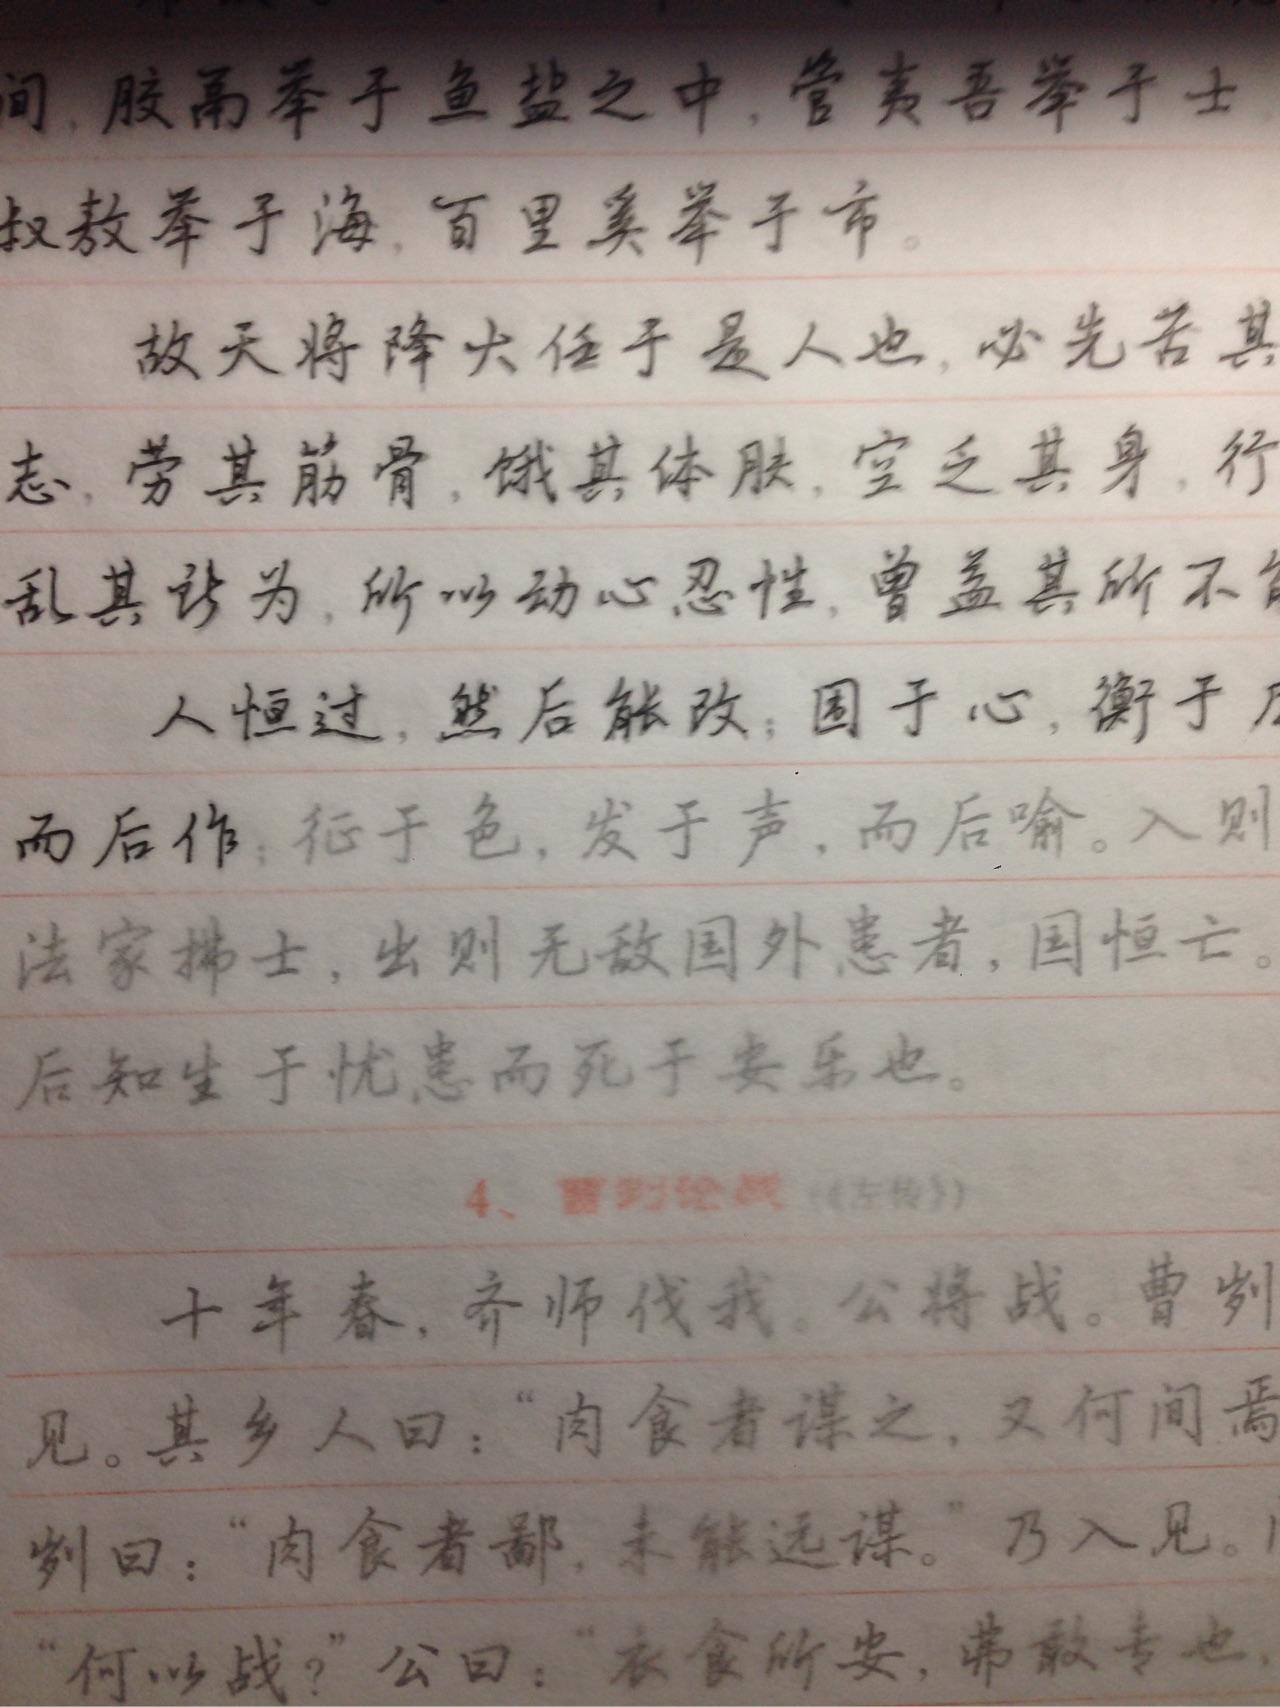 间,胶鬲举于鱼盐之中,管夷吾举于士,
叔敖举于海,百里奚举于市。
故天将降大任于是人也,必先苦其
志,劳其筋骨,饿其体肤,空乏其身,行
乱其所为,所以动心忍性,曾益其所不能
人恒过,然后能改;困于心,衡于
而后作;征于色,发于声,而后喻。入则
法家拂士,出则无敌国外患者,国恒亡。
后知生于忧患而死于安乐也。
4、曹刿论战(《左传》)
十年春,齐师伐我。公将战。曹刿
见。其乡人曰:“肉食者谋之,又何间焉
刿曰:“肉食者鄙,未能远谋。”乃入见。
“何以战?”公曰:“衣食所安,弗敢专也,